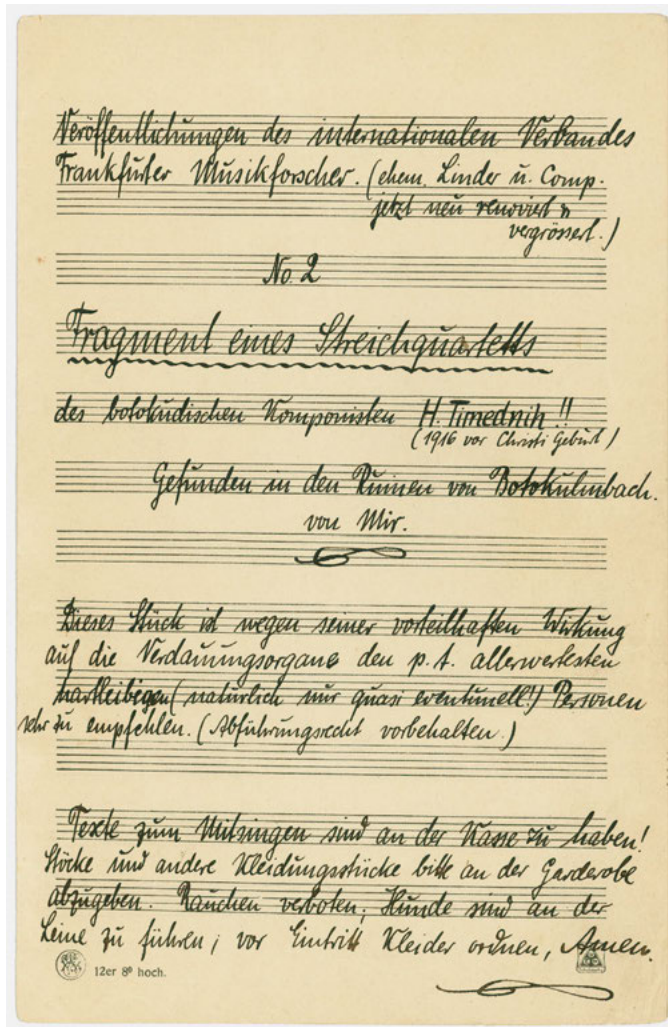 Veröffentlichungen des internationalen Verbandes
Frankfurter Musikforscher. (ehem. Linder u. Comp.
jetzt neu renoviert u
vergrössert.)
No. 2
Fragment eines Streichquartetts
des botokudischen Komponisten H. Timednih!!
(1916 vor Christi Geburt)
Gefunden in den Ruinen von Botokulmbach.
von Mir.
Dieses Stück ist wegen seiner vorteilhaften Wirkung
auf die Verdauungsorgane den p. t. allerwertesten
hartleibigen (natürlich nur quasi eventunell!) Personen
sehr zu empfehlen. (Abführungsrecht vorbehalten.)
Texte zum Mitsingen sind an der Kasse zu haben!
Stöcke und andere Kleidungsstücke bitte an der Garderobe
abzugeben. Rauchen verboten; Hunde sind an der
Leine zu führen; vor Eintritt Kleider ordnen, Amen.
12er 8º hoch.